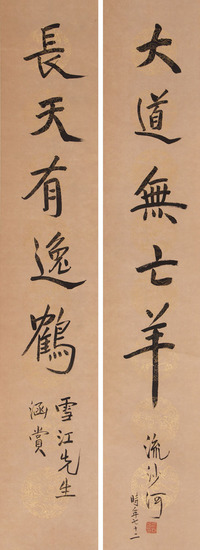 大道無亡羊
流沙河
時年七十二
長天有逸鶴
雪江先生
涵賞